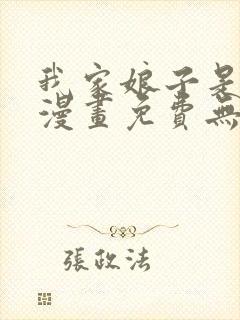 我家娘子是
漫畫免費無
張政法